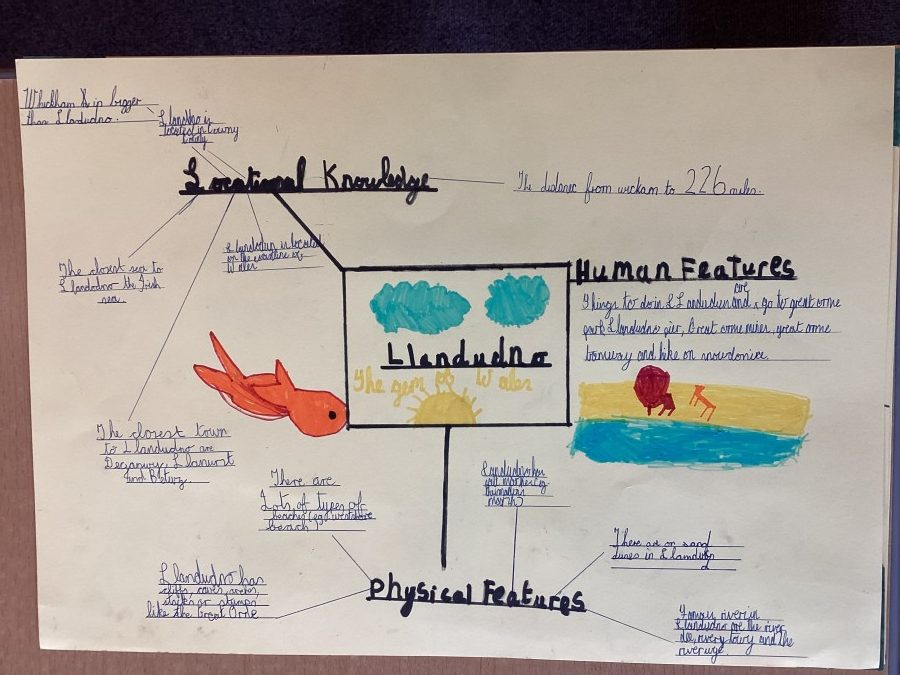 Whickham is bigger
than Llandudno.
Llandno is
located in Conwy
County
Locational Knowledge
The distance from wickam to 226 miles.
The closest sea to
Llandudno the Irish
sea.
Llandudun is located
on the coastline of
Wales
Human Features
Things to do in LLandudun and are go to great orme
park Llandudno pier, Great orme mines, great orme
tramway and hike on snowdonia.
Llandudno
The gem of Wales
The closest town
to Llandudno are
Deganwy, Llanwrst
and Betwz.
There are
Lots of types of
beaches (eg: west shore
beach)
Llandudno has
salt marshes eg
marsh)
There are on sand
dunes in
Llandudno has
cliffs, caves, arches,
stacks or stumps
like the Great Orme
Physical Features
Famous river in
Llandudno are the river
dee, river
and the